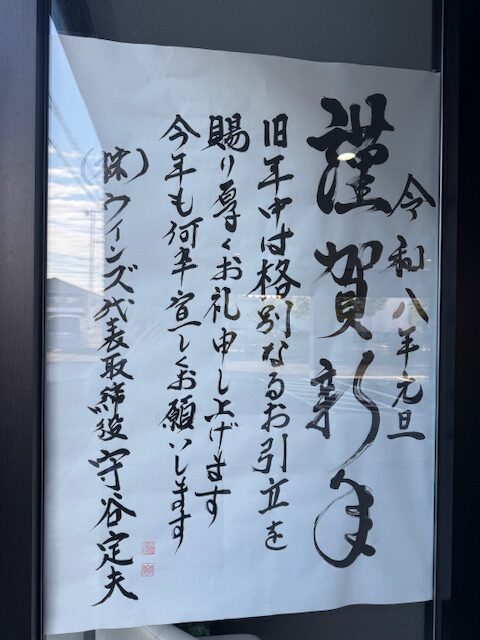 令和八年元旦
謹賀新年
旧年中は格別なるお引立を
賜り厚くお礼申し上げます
今年も何卒宜しくお願いします
(株)ウインズ代表取締役 守谷定夫